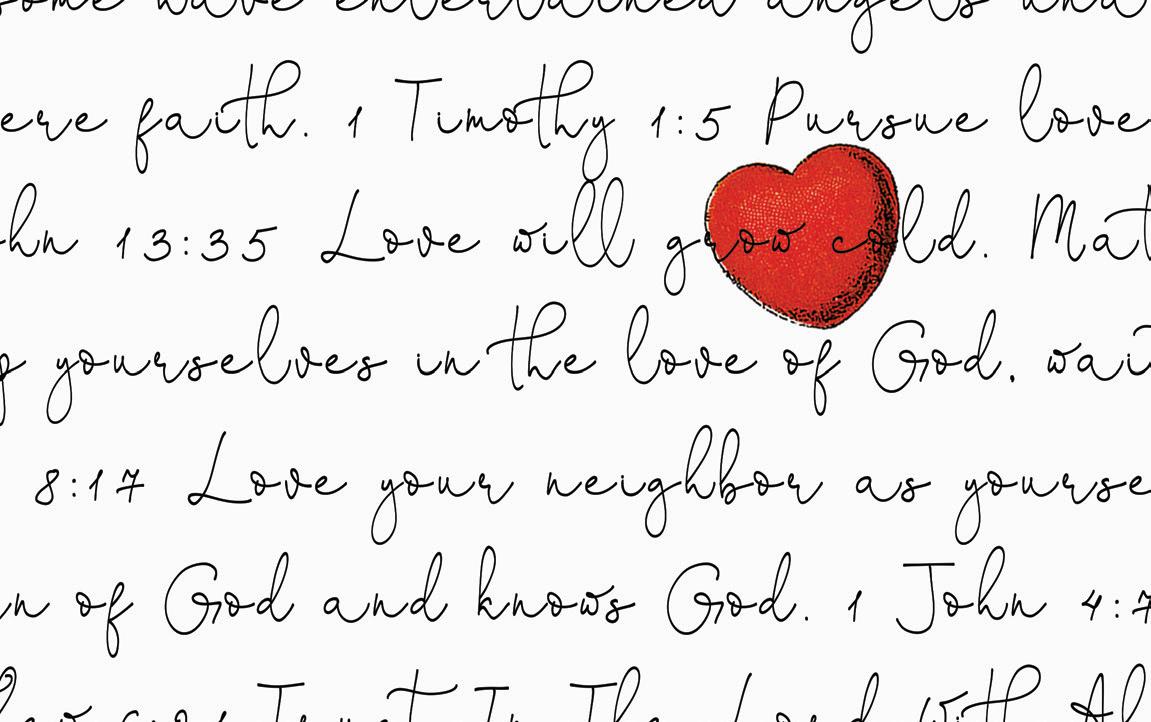 some have entertained angels una
ere faith. 1 Timothy 1:5 Pursue love
hn 13:35 Love will grow cold. Mat
p yourselves in the love of God, wai
8:17 Love your neighbor as yourse
n of God and knows God. 1 John 4:7
Trust In The Lord With Al